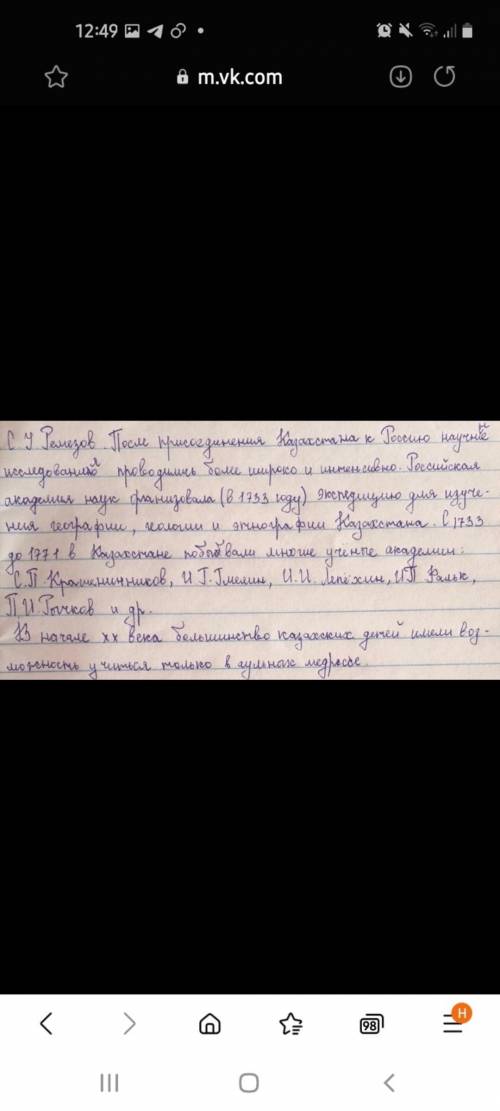 12:49
m.vk.com
С У Ремезов. После присоединения Казахстана к Россию научные
исследования проводились более широко и интенсивно. Российская
академия наук финизовала (в 1733 году) экспедицию для изуче-
ния географии, геологии и этнографии Казахстана. С 1733
до 1771 в Казахстане побывали многие учёнпе академии:
С.П. Крашеничников, И Г. Гмелин, И.И. Лепёхин, ИП Фальк,
П.И. Рычков и др.
В начале хх века большинство казахских детей имели воз-
можность учиться только в медресе.
98
Н